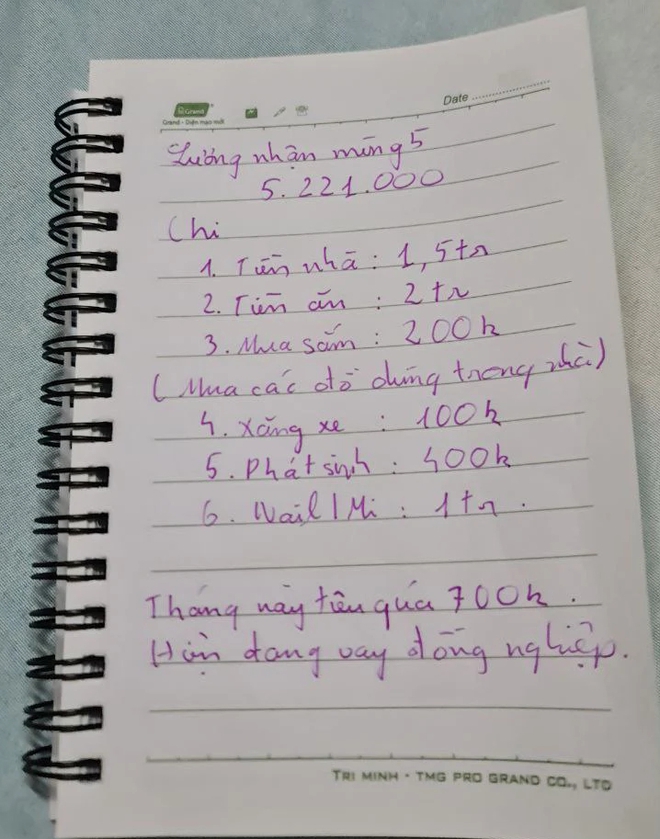 Grand
Grand - Diện mạo mới
Date
Lương nhận mùng 5
5.221.000
Chi
1. Tiền nhà : 1,5tr
2. Tiền ăn : 2tr
3. Mua sắm : 200k
(Mua các đồ dùng trong nhà)
4. Xăng xe : 100k
5. Phát sinh : 400k
6. Nail / Mi : 1tr.
Tháng này tiêu quá 700k.
Hiện đang vay đồng nghiệp.
TRI MINH - TMG PRO GRAND CO., LTD